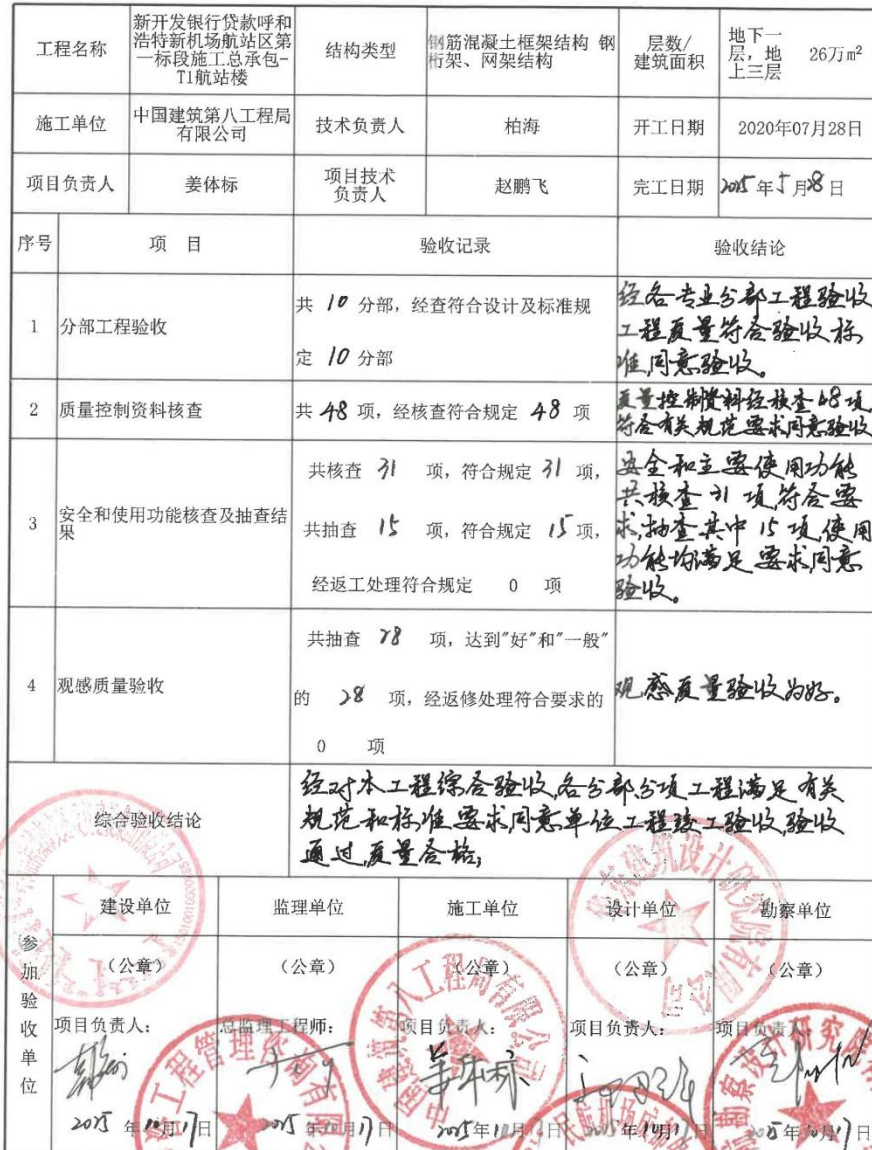 工程名称
新开发银行贷款呼和
浩特新机场航站区第
一标段施工总承包-
T1航站楼
结构类型
钢筋混凝土框架结构 钢
桁架、网架结构
层数/
建筑面积
地下一
层，地
上三层
26万m²
施工单位
中国建筑第八工程局
有限公司
技术负责人
柏海
开工日期
2020年07月28日
项目负责人
姜体标
项目技术
负责人
赵鹏飞
完工日期
2025年5月28日
序号
项 目
验收记录
验收结论
1
分部工程验收
共 10 分部，经查符合设计及标准规
定 10 分部
经各专业分部工程验收
工程质量符合验收标
准，同意验收。
2
质量控制资料核查
共 48 项，经核查符合规定 48 项
质量控制资料经核查48项，
符合有关规范要求同意验收
3
安全和使用功能核查及抽查结
果
共核查 31 项，符合规定 31 项，
共抽查 15 项，符合规定 15 项，
经返工处理符合规定 0 项
安全和主要使用功能
共核查31项，符合要
求，抽查其中15项，使用
功能均满足要求同意
验收。
4
观感质量验收
共抽查 28 项，达到"好"和"一般"
的 28 项，经返修处理符合要求的
0 项
观感质量验收为好。
综合验收结论
经对本工程综合验收，各分部分项工程满足有关
规范和标准要求，同意单位工程竣工验收，验收
通过，质量合格；
参加验收单位
建设单位
监理单位
施工单位
设计单位
勘察单位
（公章）
（公章）
（公章）
（公章）
（公章）
项目负责人：
总监理工程师：
项目负责人：
项目负责人：
项目负责人：
姜体标
2025年10月17日
2025年10月17日
2025年10月
日
2025年10月17日
2025年10月17日
工程管理咨询有限公
中国建筑第八工程局有限公司
建筑设计研究院有限公司
勘察设计研究院有